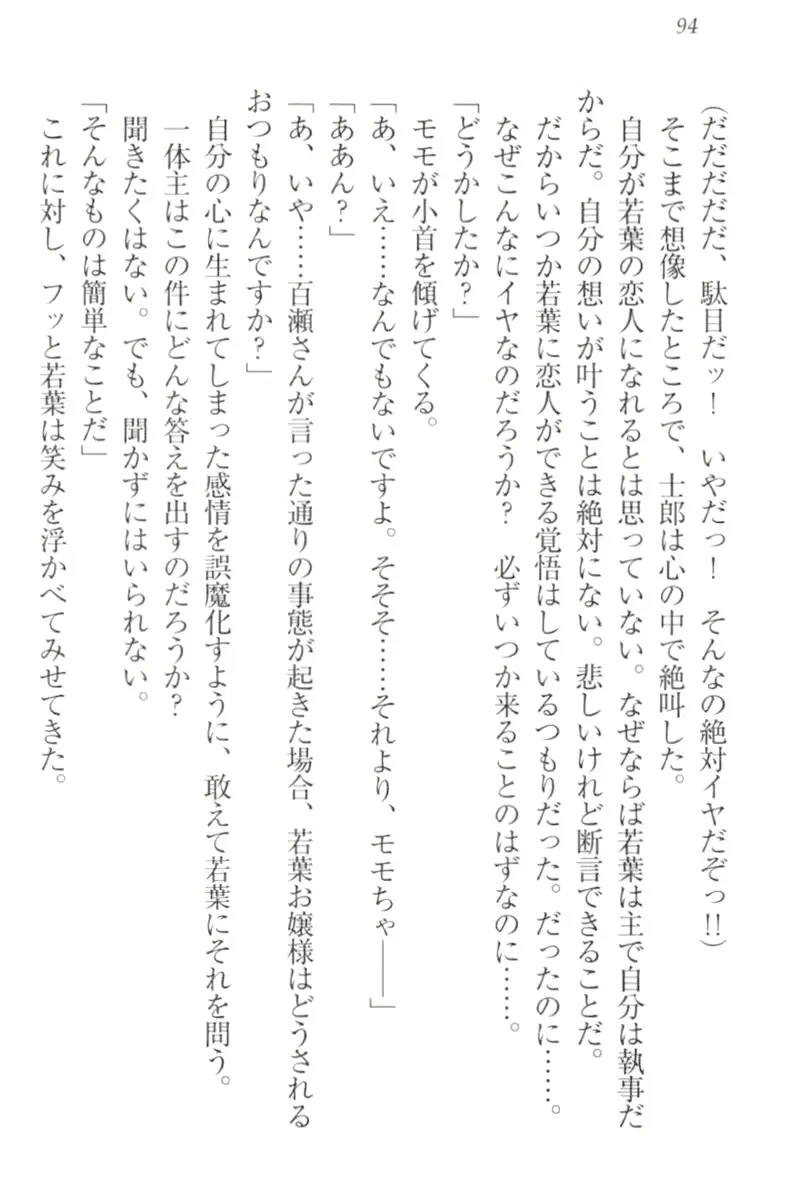 94
（だだだだだ、駄目だッ！　いやだっ！　そんなの絶対イヤだぞっ!!）
そこまで想像したところで、士郎は心の中で絶叫した。
自分が若葉の恋人になれるとは思っていない。なぜならば若葉は主で自分は執事だ
からだ。自分の想いが叶うことは絶対にない。悲しいけれど断言できることだ。
だからいつか若葉に恋人ができる覚悟はしているつもりだった。だったのに……。
なぜこんなにイヤなのだろうか？　必ずいつか来ることのはずなのに……。
「どうかしたか？」
モモが小首を傾げてくる。
「あ、いえ……なんでもないですよ。そそそ……それより、モモちゃ――」
「ああん？」
「あ、いや……百瀬さんが言った通りの事態が起きた場合、若葉お嬢様はどうされる
おつもりなんですか？」
自分の心に生まれてしまった感情を誤魔化すように、敢えて若葉にそれを問う。
一体主はこの件にどんな答えを出すのだろうか？
聞きたくはない。でも、聞かずにはいられない。
「そんなものは簡単なことだ」
これに対し、フッと若葉は笑みを浮かべてみせてきた。